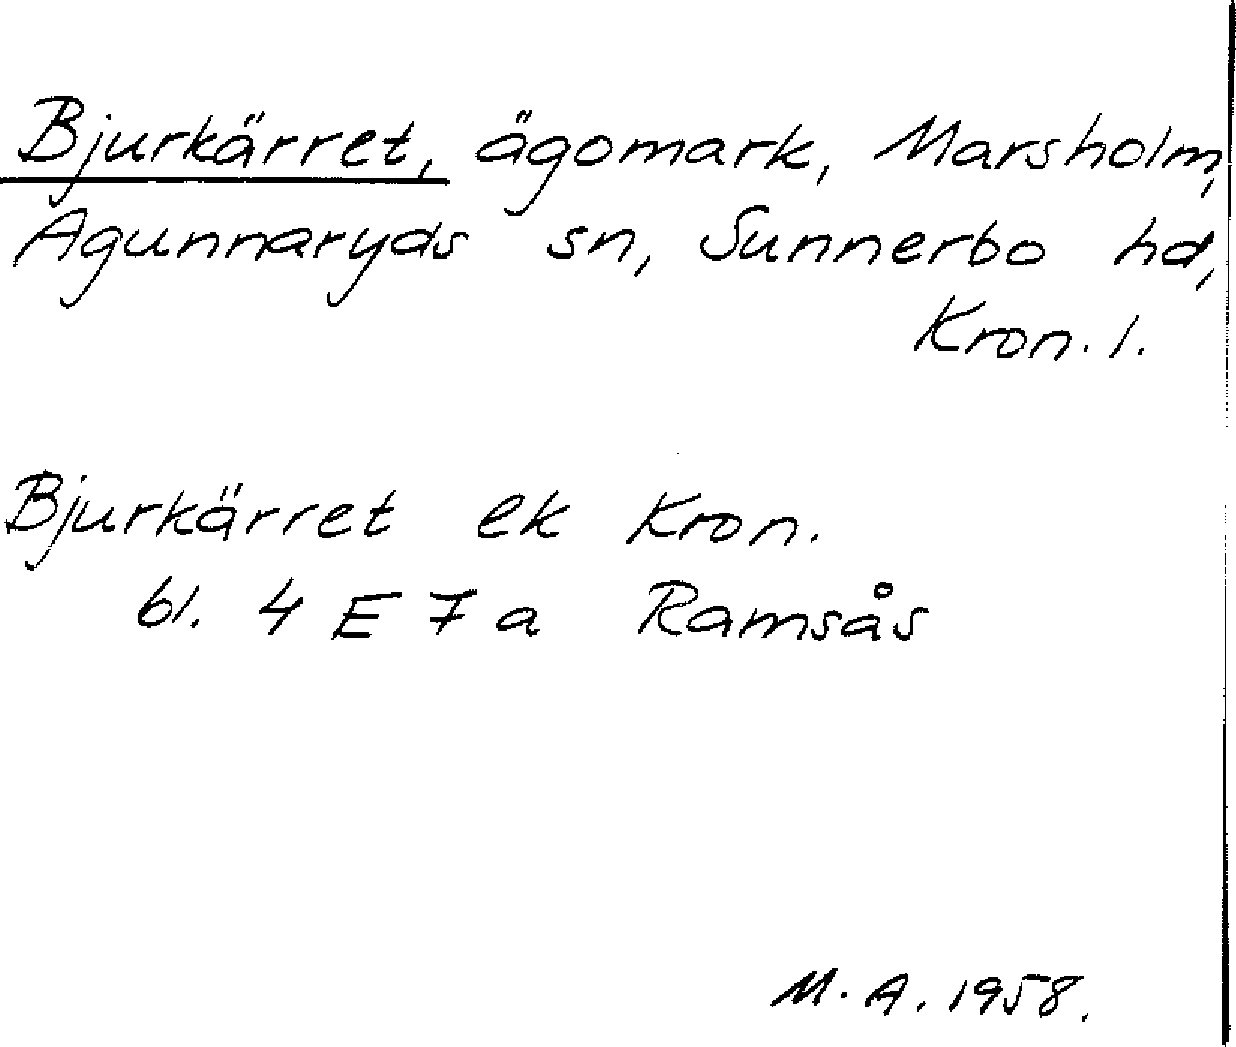 Bjurkärret, ägomark, Marsholm,
Agunnaryds sn, Sunnerbo hd,
Kron. l.
Bjurkärret ek Kron.
bl. 4 E 7 a Ramsås
M. A. 1958.